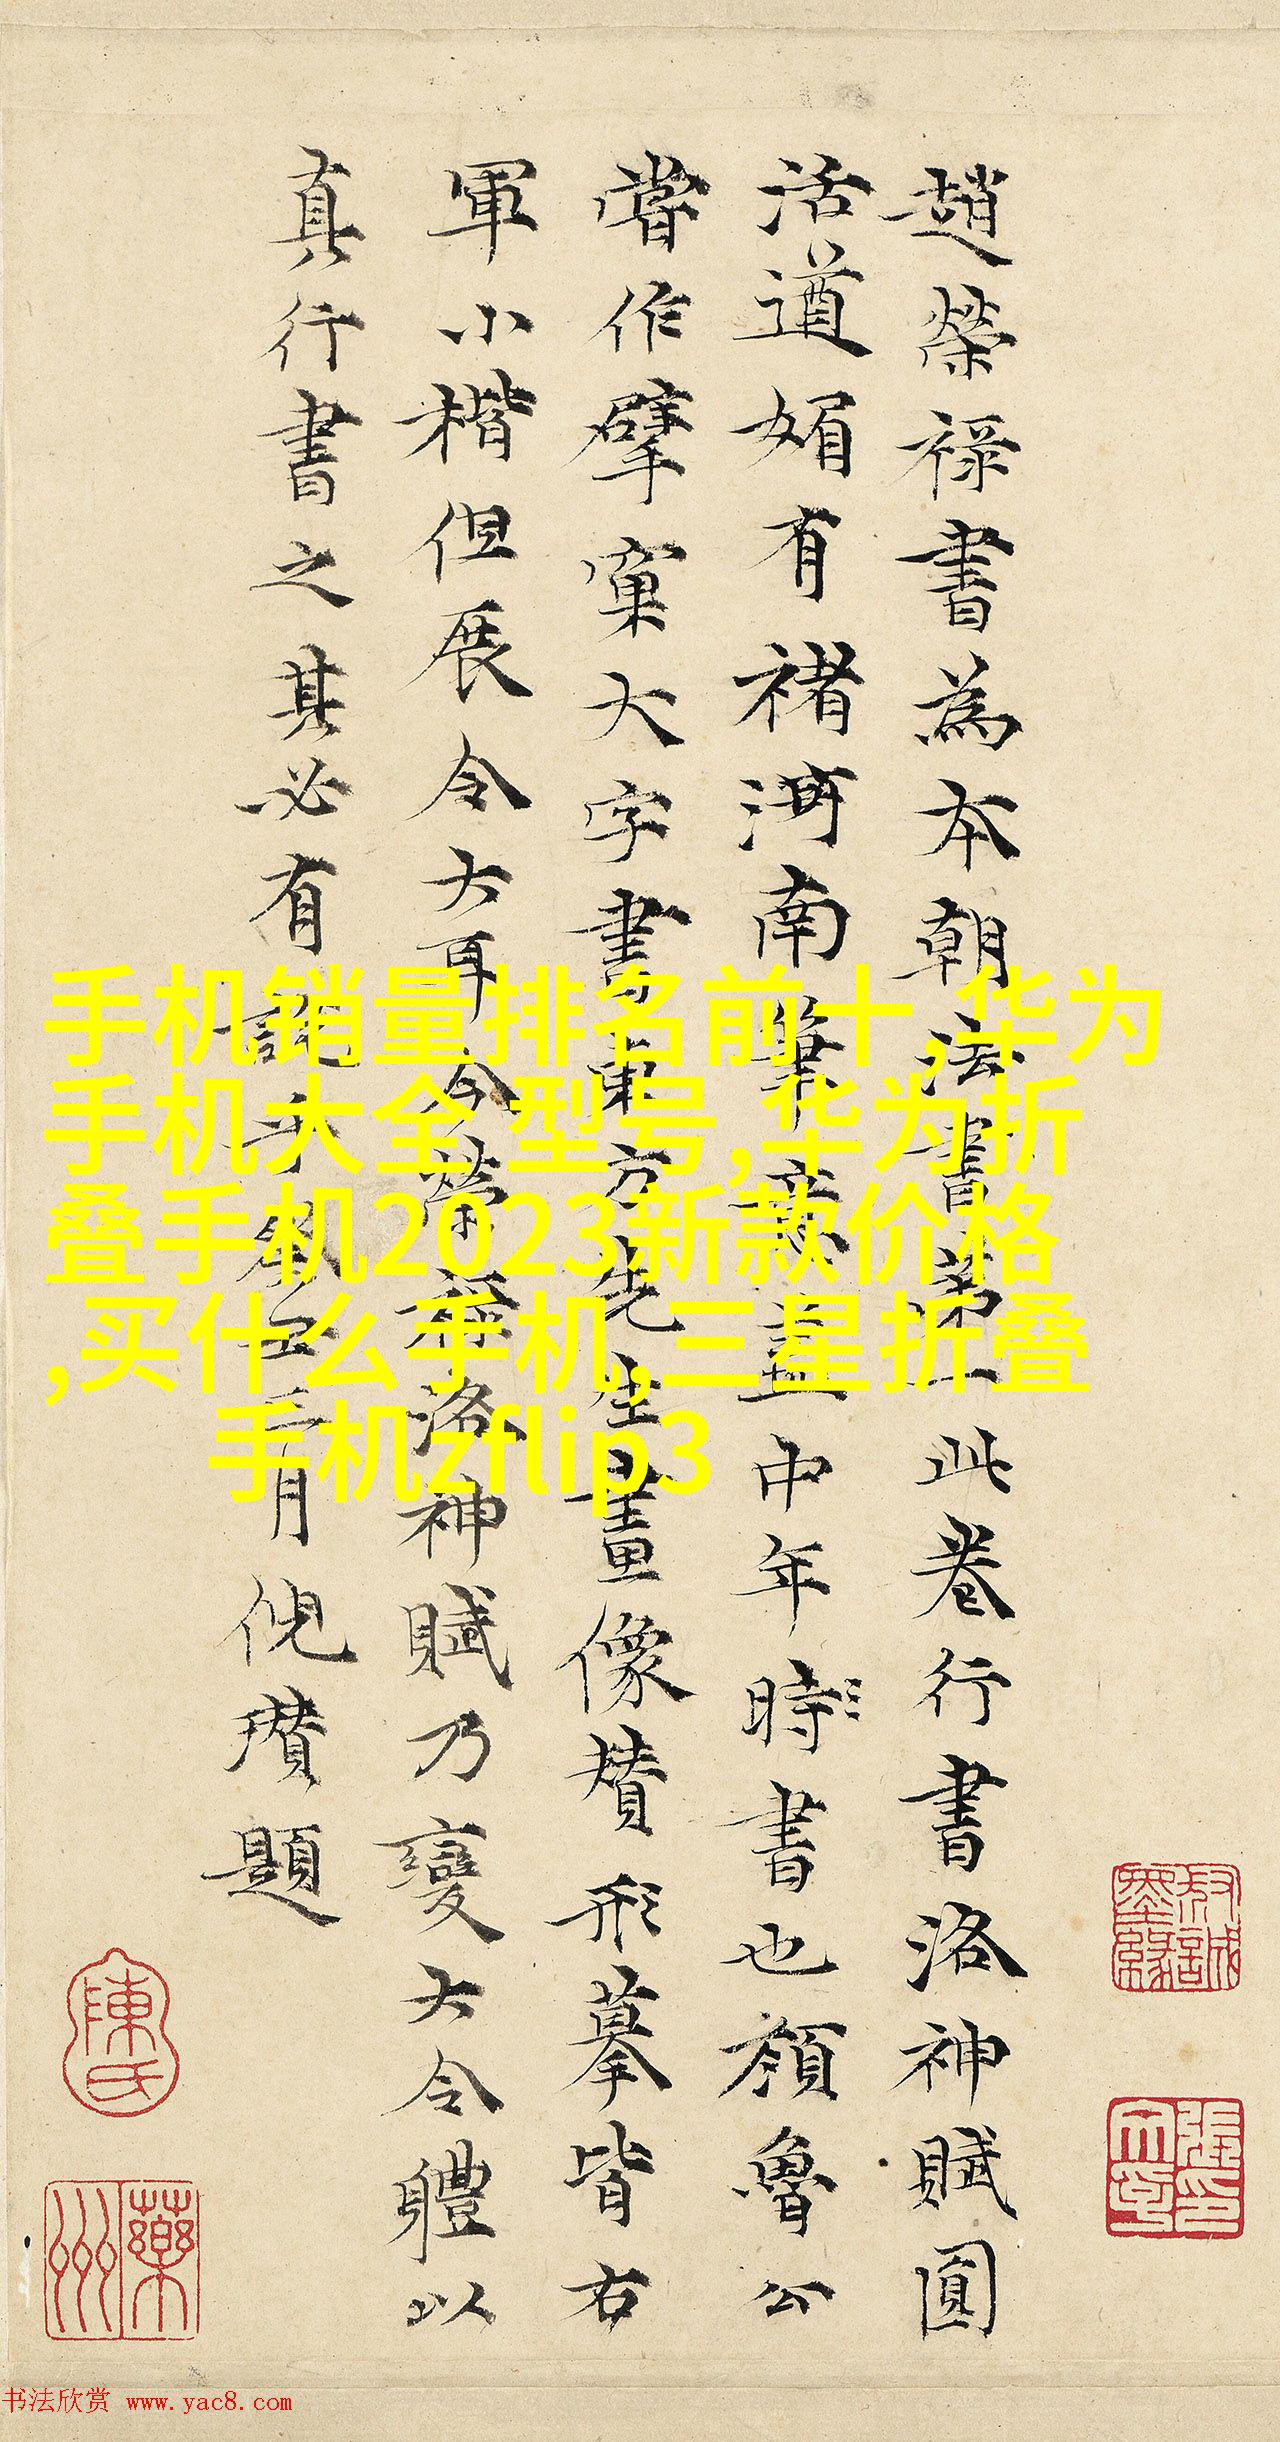 趙榮祿書為本朝法書第一此卷行書洛神賦圓
活遒媚有褚河南筆意蓋中年時書也顏魯公
嘗作擘窠大字書東方先生畫像贊形摹皆右
軍小楷但展令大耳今榮祿洛神賦乃變大令體以
真行書之其必有說乎
月倪瓚題
手机销量排名前十,华为
手机大全 型号,华为折
叠手机2023新款价格
,买什么手机,三星折叠
手机zflip3
陳氏
蘂州
书法欣赏 www.yac8.com